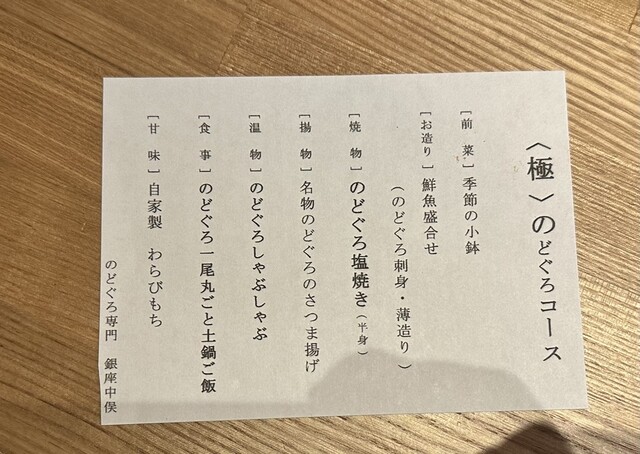 〈極〉のどぐろコース
［前　菜］季節の小鉢
［お造り］鮮魚盛合せ
（のどぐろ刺身・薄造り）
［焼　物］のどぐろ塩焼き（半身）
［揚　物］名物のどぐろのさつま揚げ
［温　物］のどぐろしゃぶしゃぶ
［食　事］のどぐろ一尾丸ごと土鍋ご飯
［甘　味］自家製　わらびもち
のどぐろ専門　銀座中俣